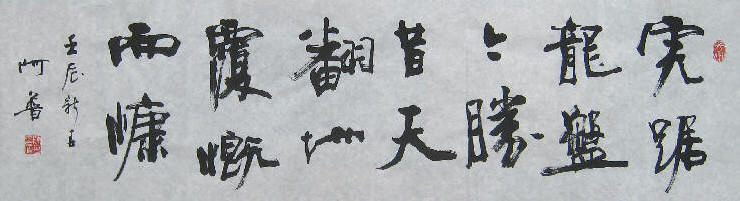 虎踞
龍盤
今勝
昔天
翻地
覆慨
而慷
壬辰新
阿普